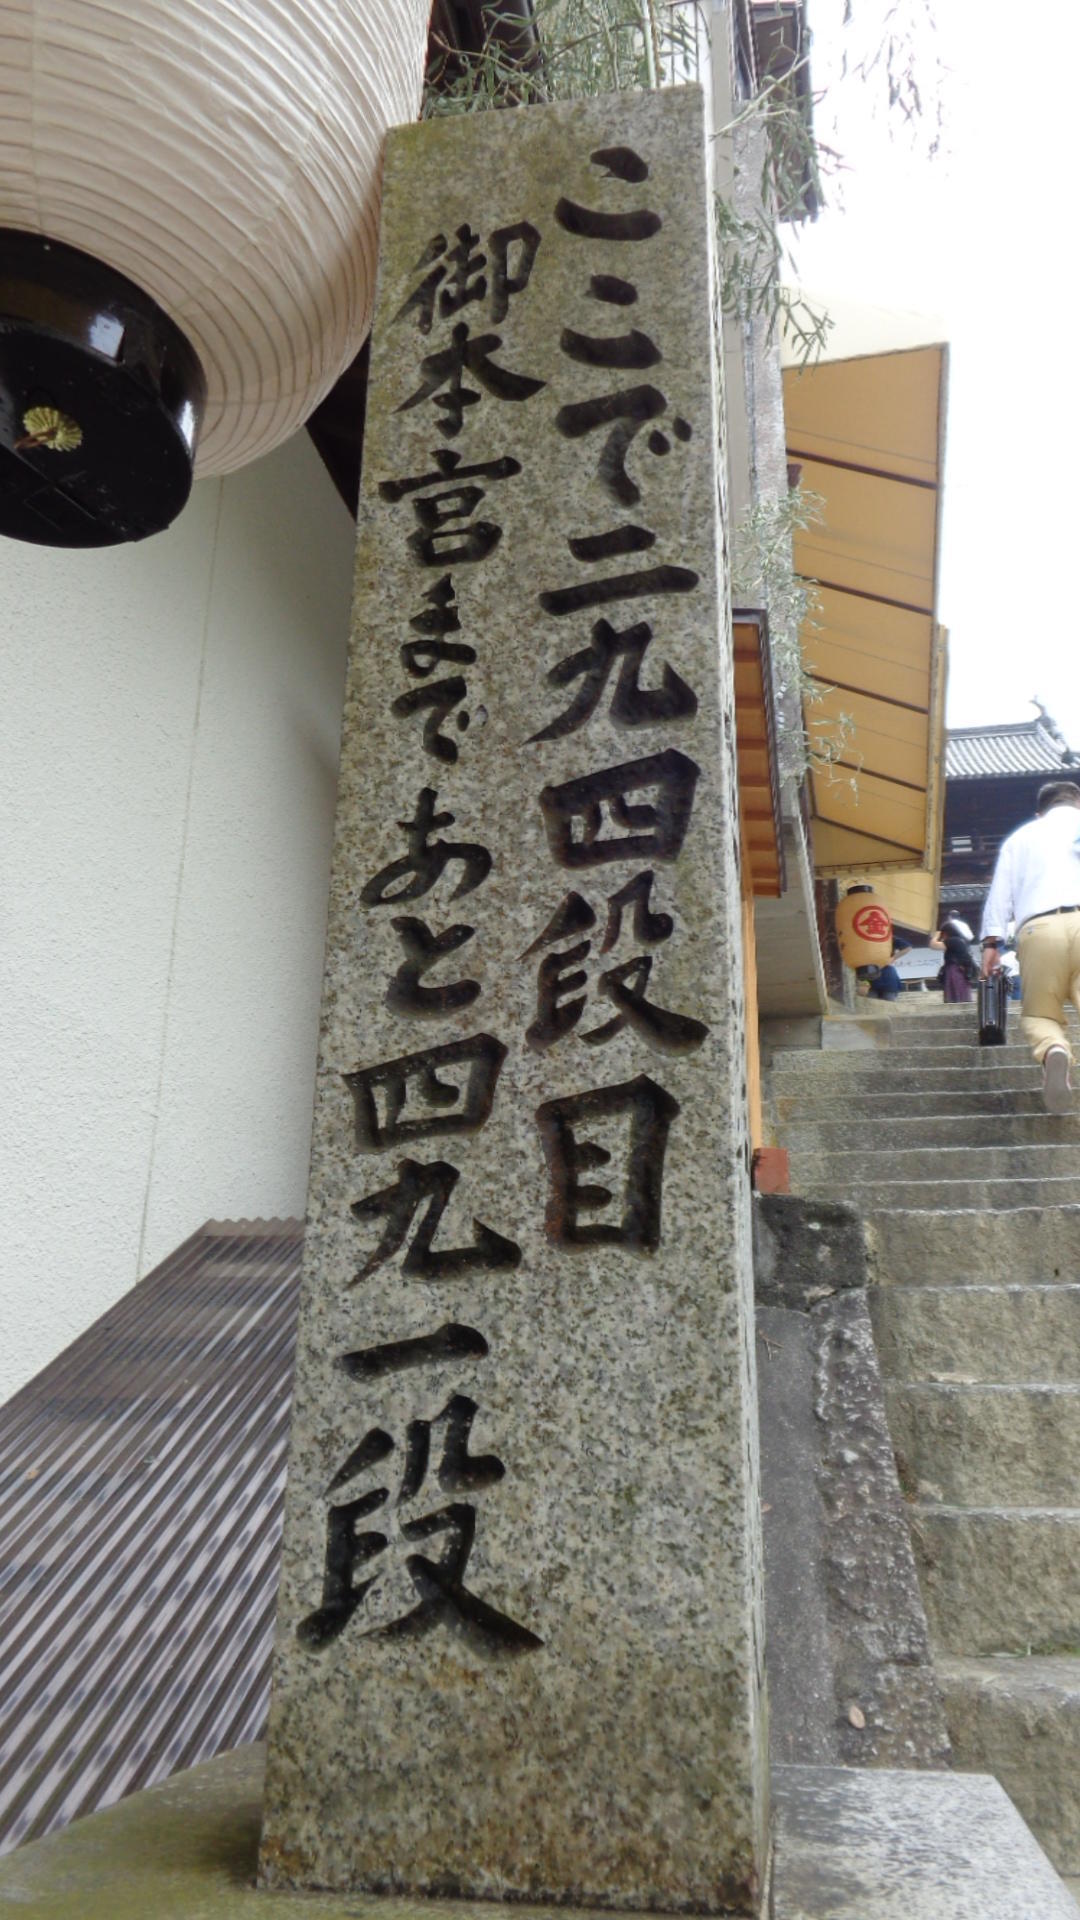 ここで二九四段目
御本宮まであと四九一段
金